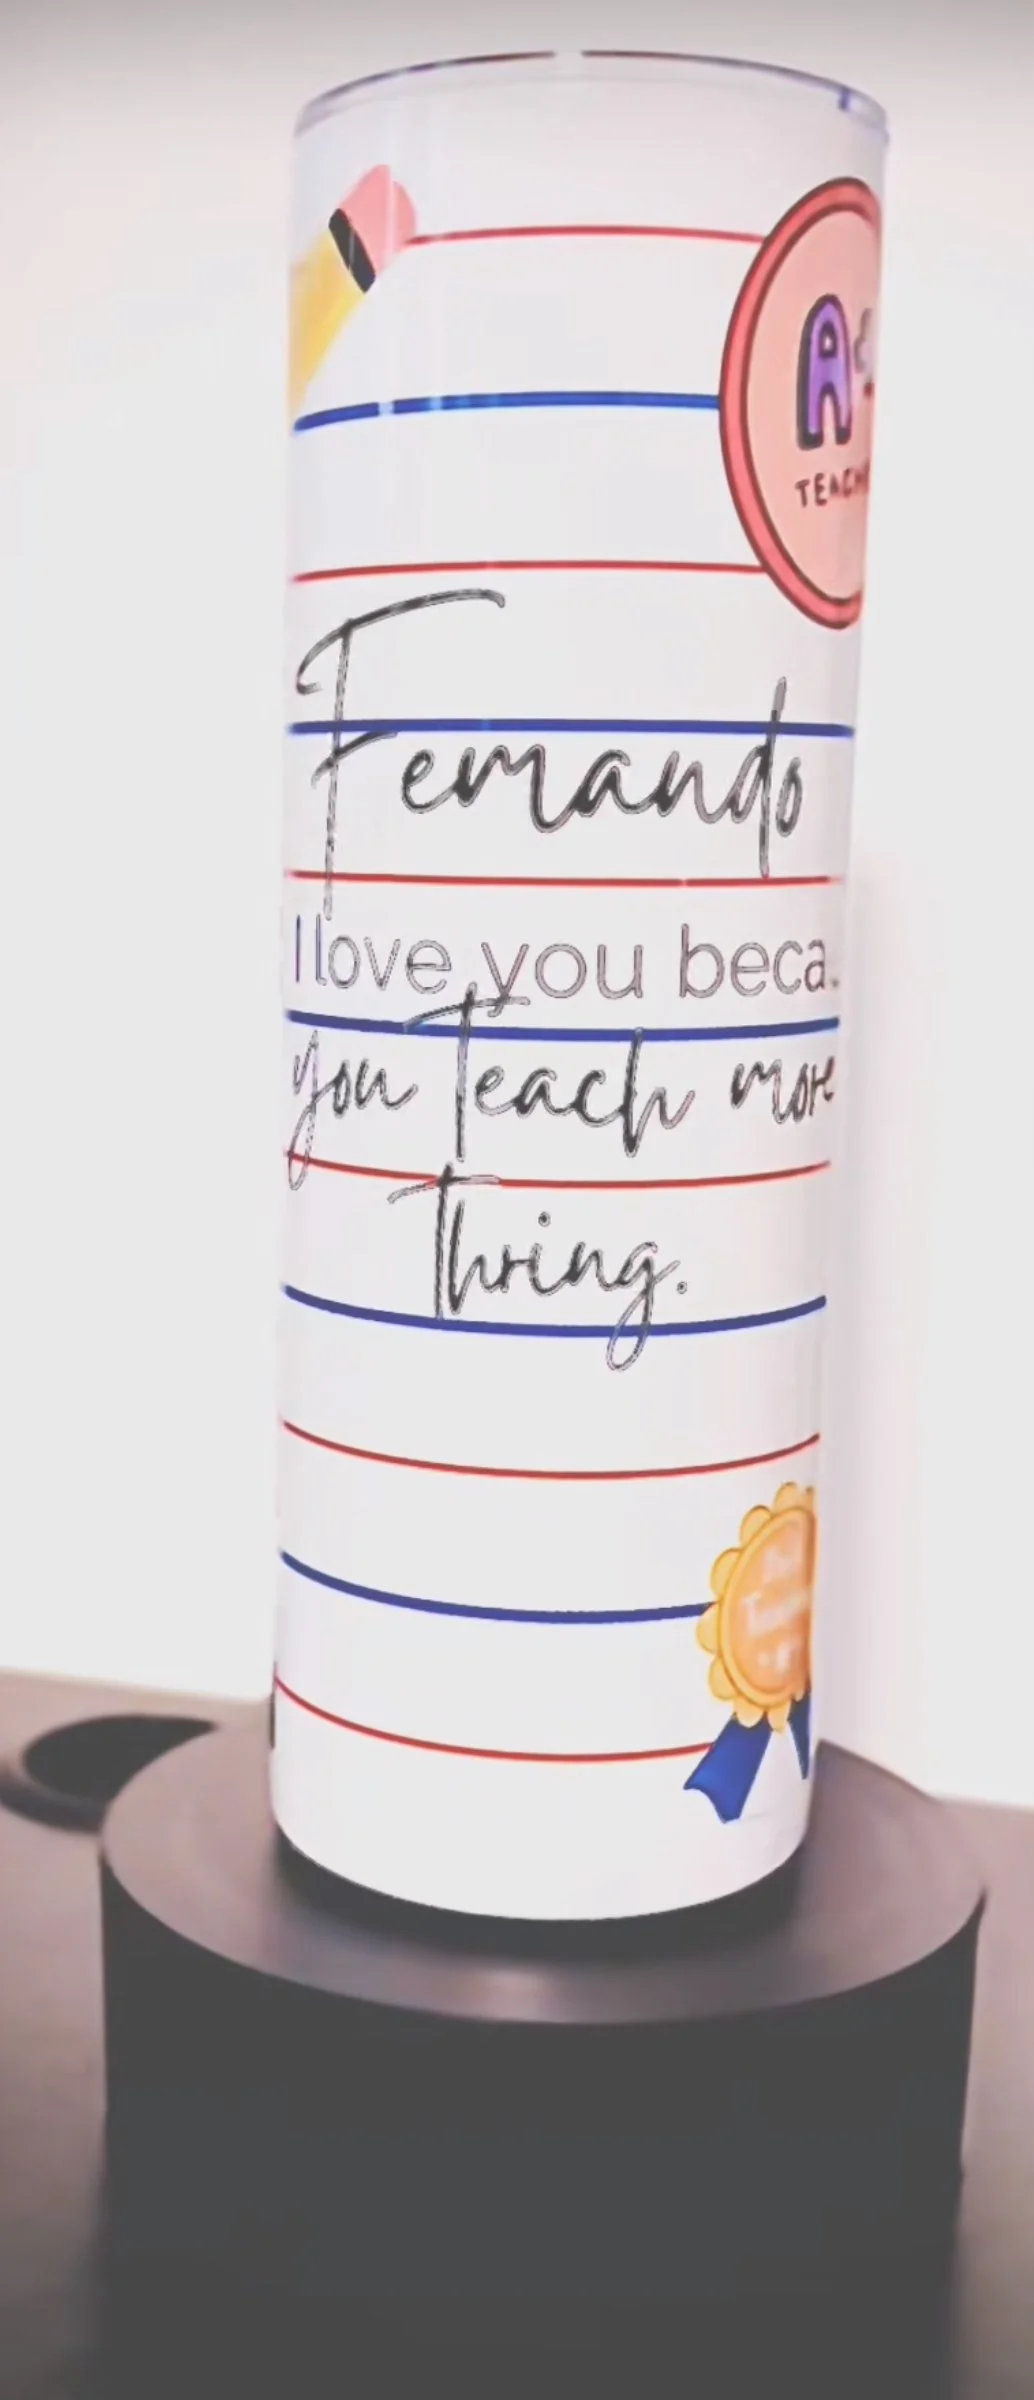 A+
TEACHE
Fernando
I love you beca
you Teach more
Thring.